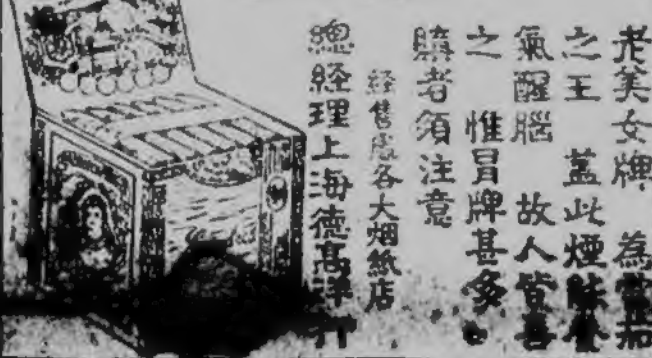 老美女牌　為雪茄
之王　蓋此煙味
氣醒腦　故人皆喜
之　惟冒牌甚多
購者須注意
経售處各大烟紙店
總経理上海德髙洋行